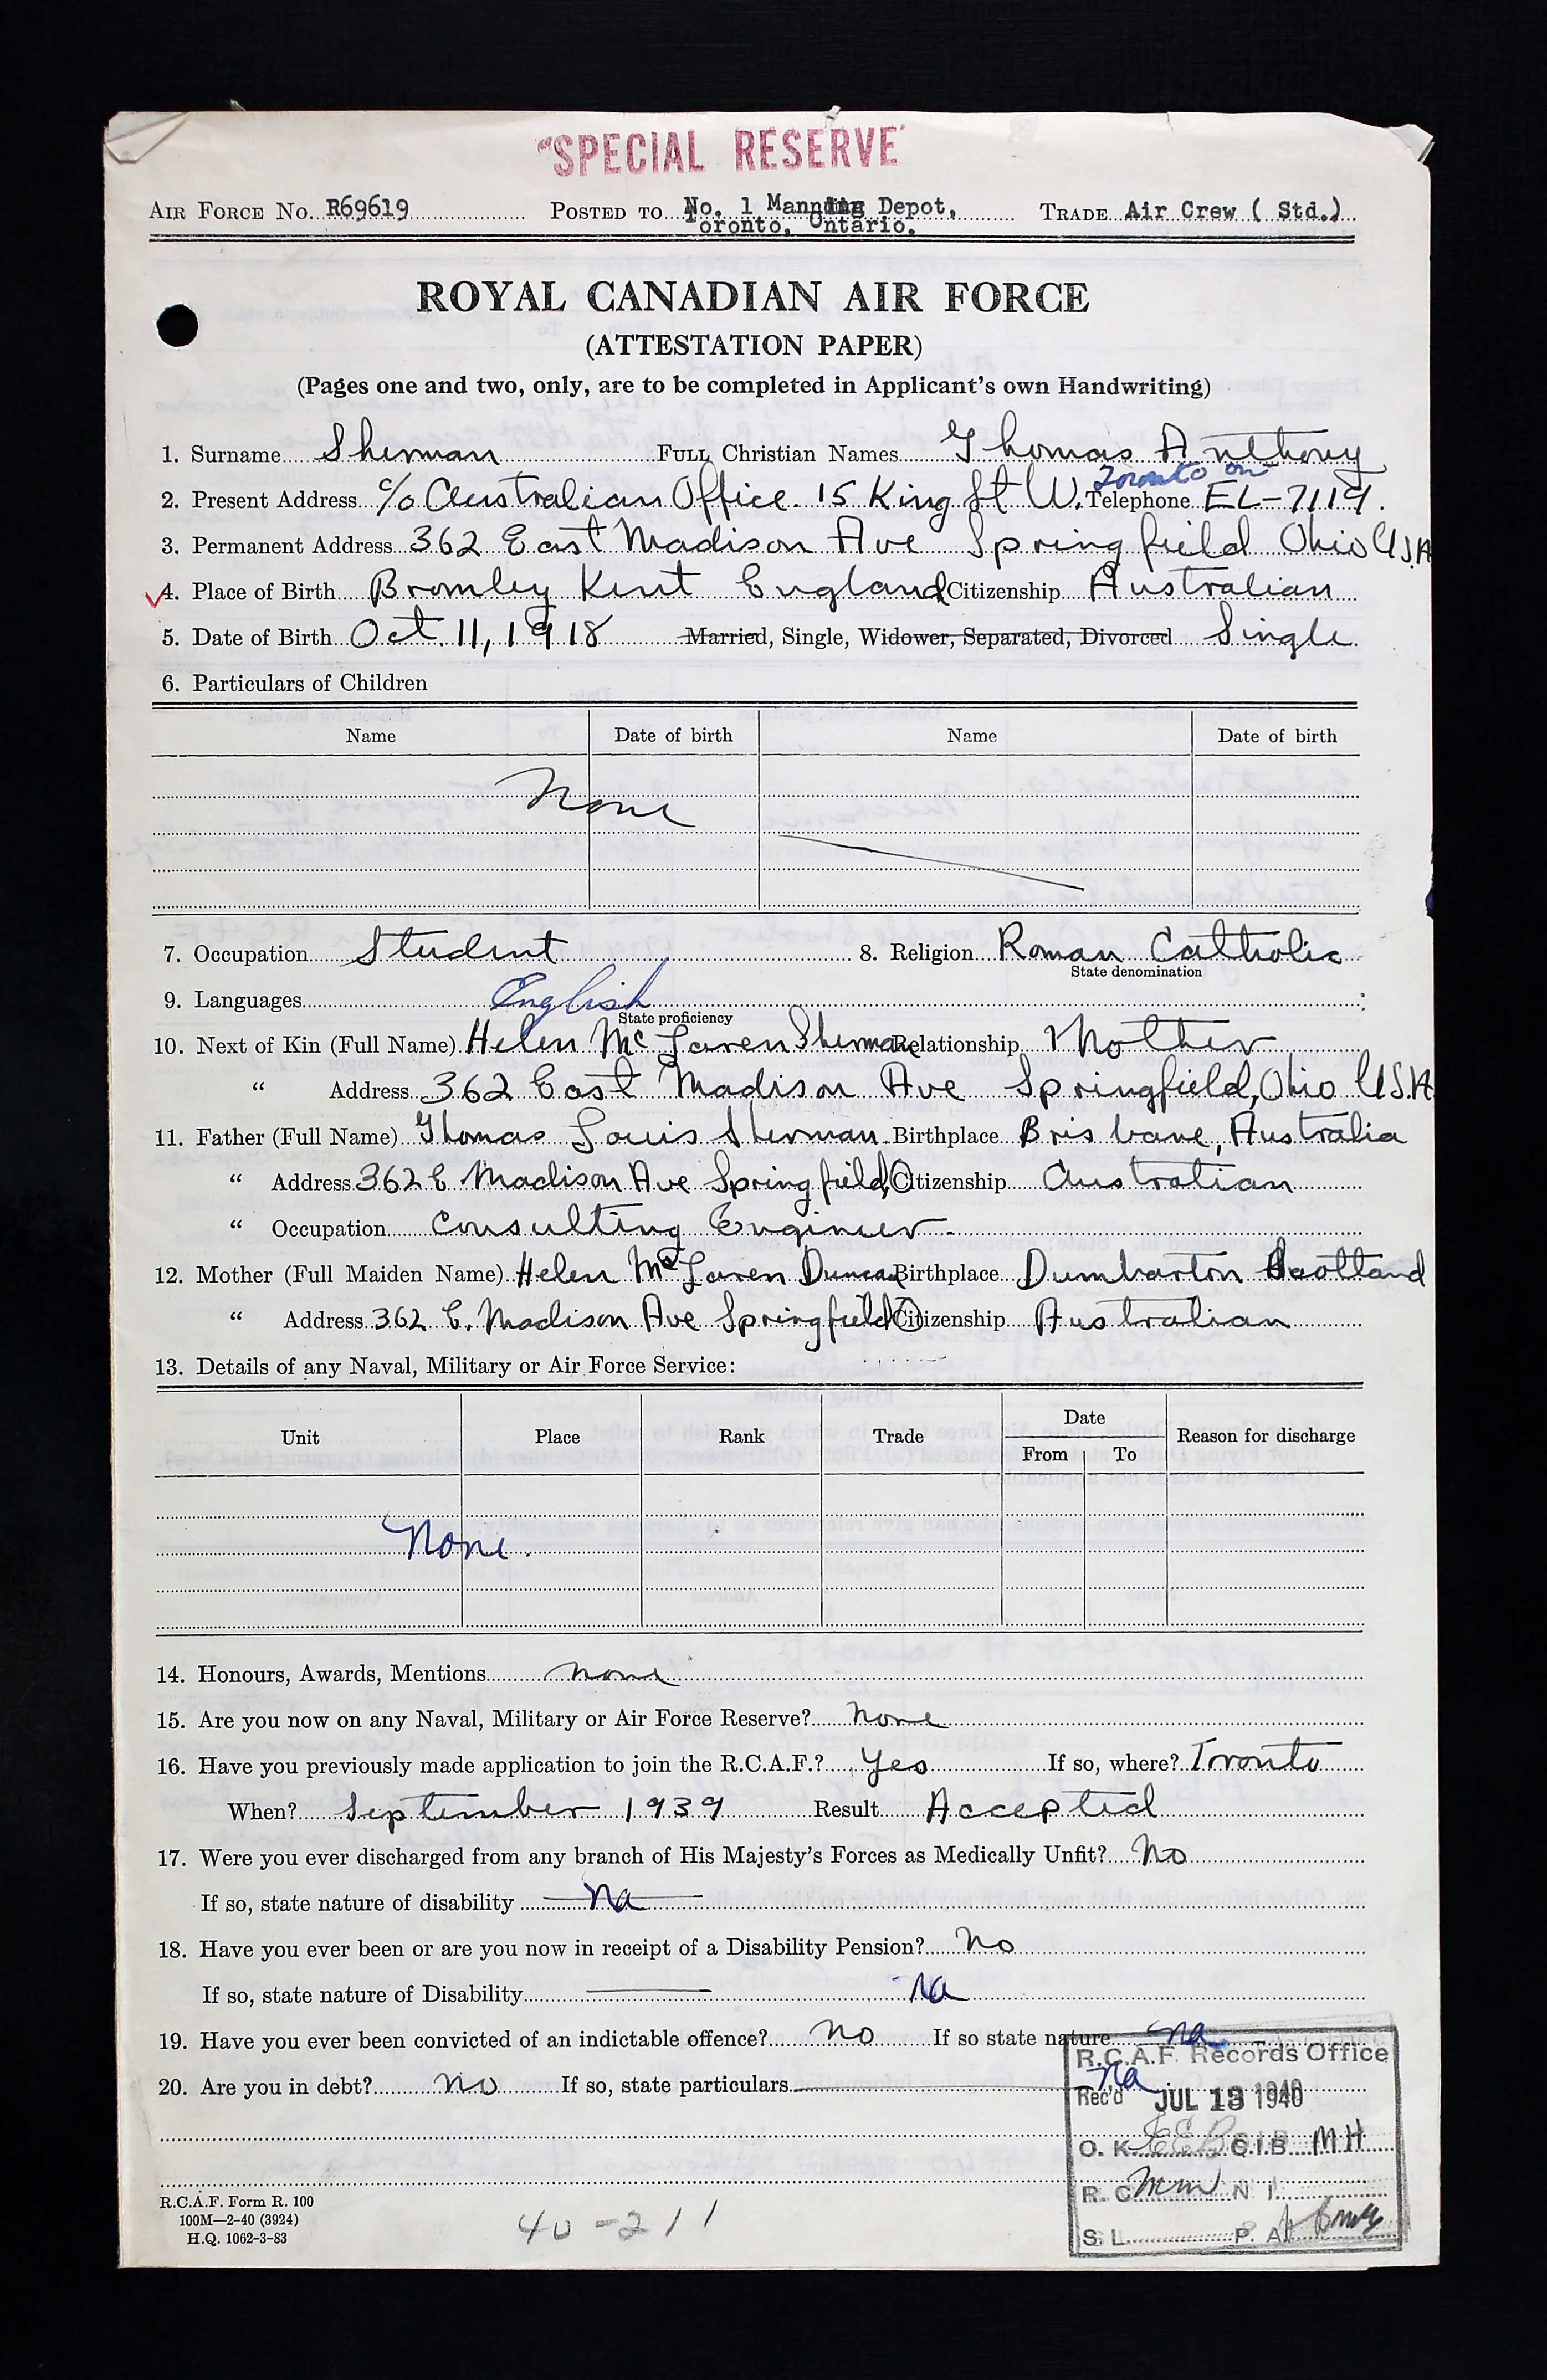 "SPECIAL RESERVE"
AIR FORCE NO. R69619 POSTED TO No. 1 Manning Depot, Toronto, Ontario. TRADE Air Crew ( Std.)
ROYAL CANADIAN AIR FORCE
(ATTESTATION PAPER)
(Pages one and two, only, are to be completed in Applicant's own Handwriting)
1. Surname Sherman FULL Christian Names Thomas Anthony
2. Present Address c/o Australian Office. 15 King St W. Toronto Ont Telephone EL-7119.
3. Permanent Address 362 East Madison Ave Springfield Ohio U.S.A
4. Place of Birth Bromley Kent England Citizenship Australian
5. Date of Birth Oct. 11, 1918 Married, Single, Widower, Separated, Divorced Single
6. Particulars of Children
Name Date of birth Name Date of birth
None
7. Occupation Student 8. Religion Roman Catholic
State denomination
9. Languages English
State proficiency
10. Next of Kin (Full Name) Helen McLaren Sherman Relationship Mother
" Address 362 East Madison Ave Springfield, Ohio U.S.A
11. Father (Full Name) Thomas Louis Sherman Birthplace Brisbane, Australia
" Address 362 E Madison Ave Springfield, O Citizenship Australian
" Occupation Consulting Engineer
12. Mother (Full Maiden Name) Helen McLaren Duncan Birthplace Dumbarton Scotland
" Address 362 E. Madison Ave Springfield O Citizenship Australian
13. Details of any Naval, Military or Air Force Service:
Unit Place Rank Trade Date Reason for discharge
From To
None.
14. Honours, Awards, Mentions none
15. Are you now on any Naval, Military or Air Force Reserve? None
16. Have you previously made application to join the R.C.A.F.? Yes If so, where? Toronto
When? September 1939 Result Accepted
17. Were you ever discharged from any branch of His Majesty's Forces as Medically Unfit? No
If so, state nature of disability Na
18. Have you ever been or are you now in receipt of a Disability Pension? No
If so, state nature of Disability Na
19. Have you ever been convicted of an indictable offence? No If so state nature na
20. Are you in debt? no If so, state particulars na
R.C.A.F. Records Office
Rec'd JUL 13 1940
O. K. EEB C.I.B. MH
R. C. mm N I.
S. L. P. A.
R.C.A.F. Form R. 100
100M—2-40 (3924)
H.Q. 1062-3-83
40-211